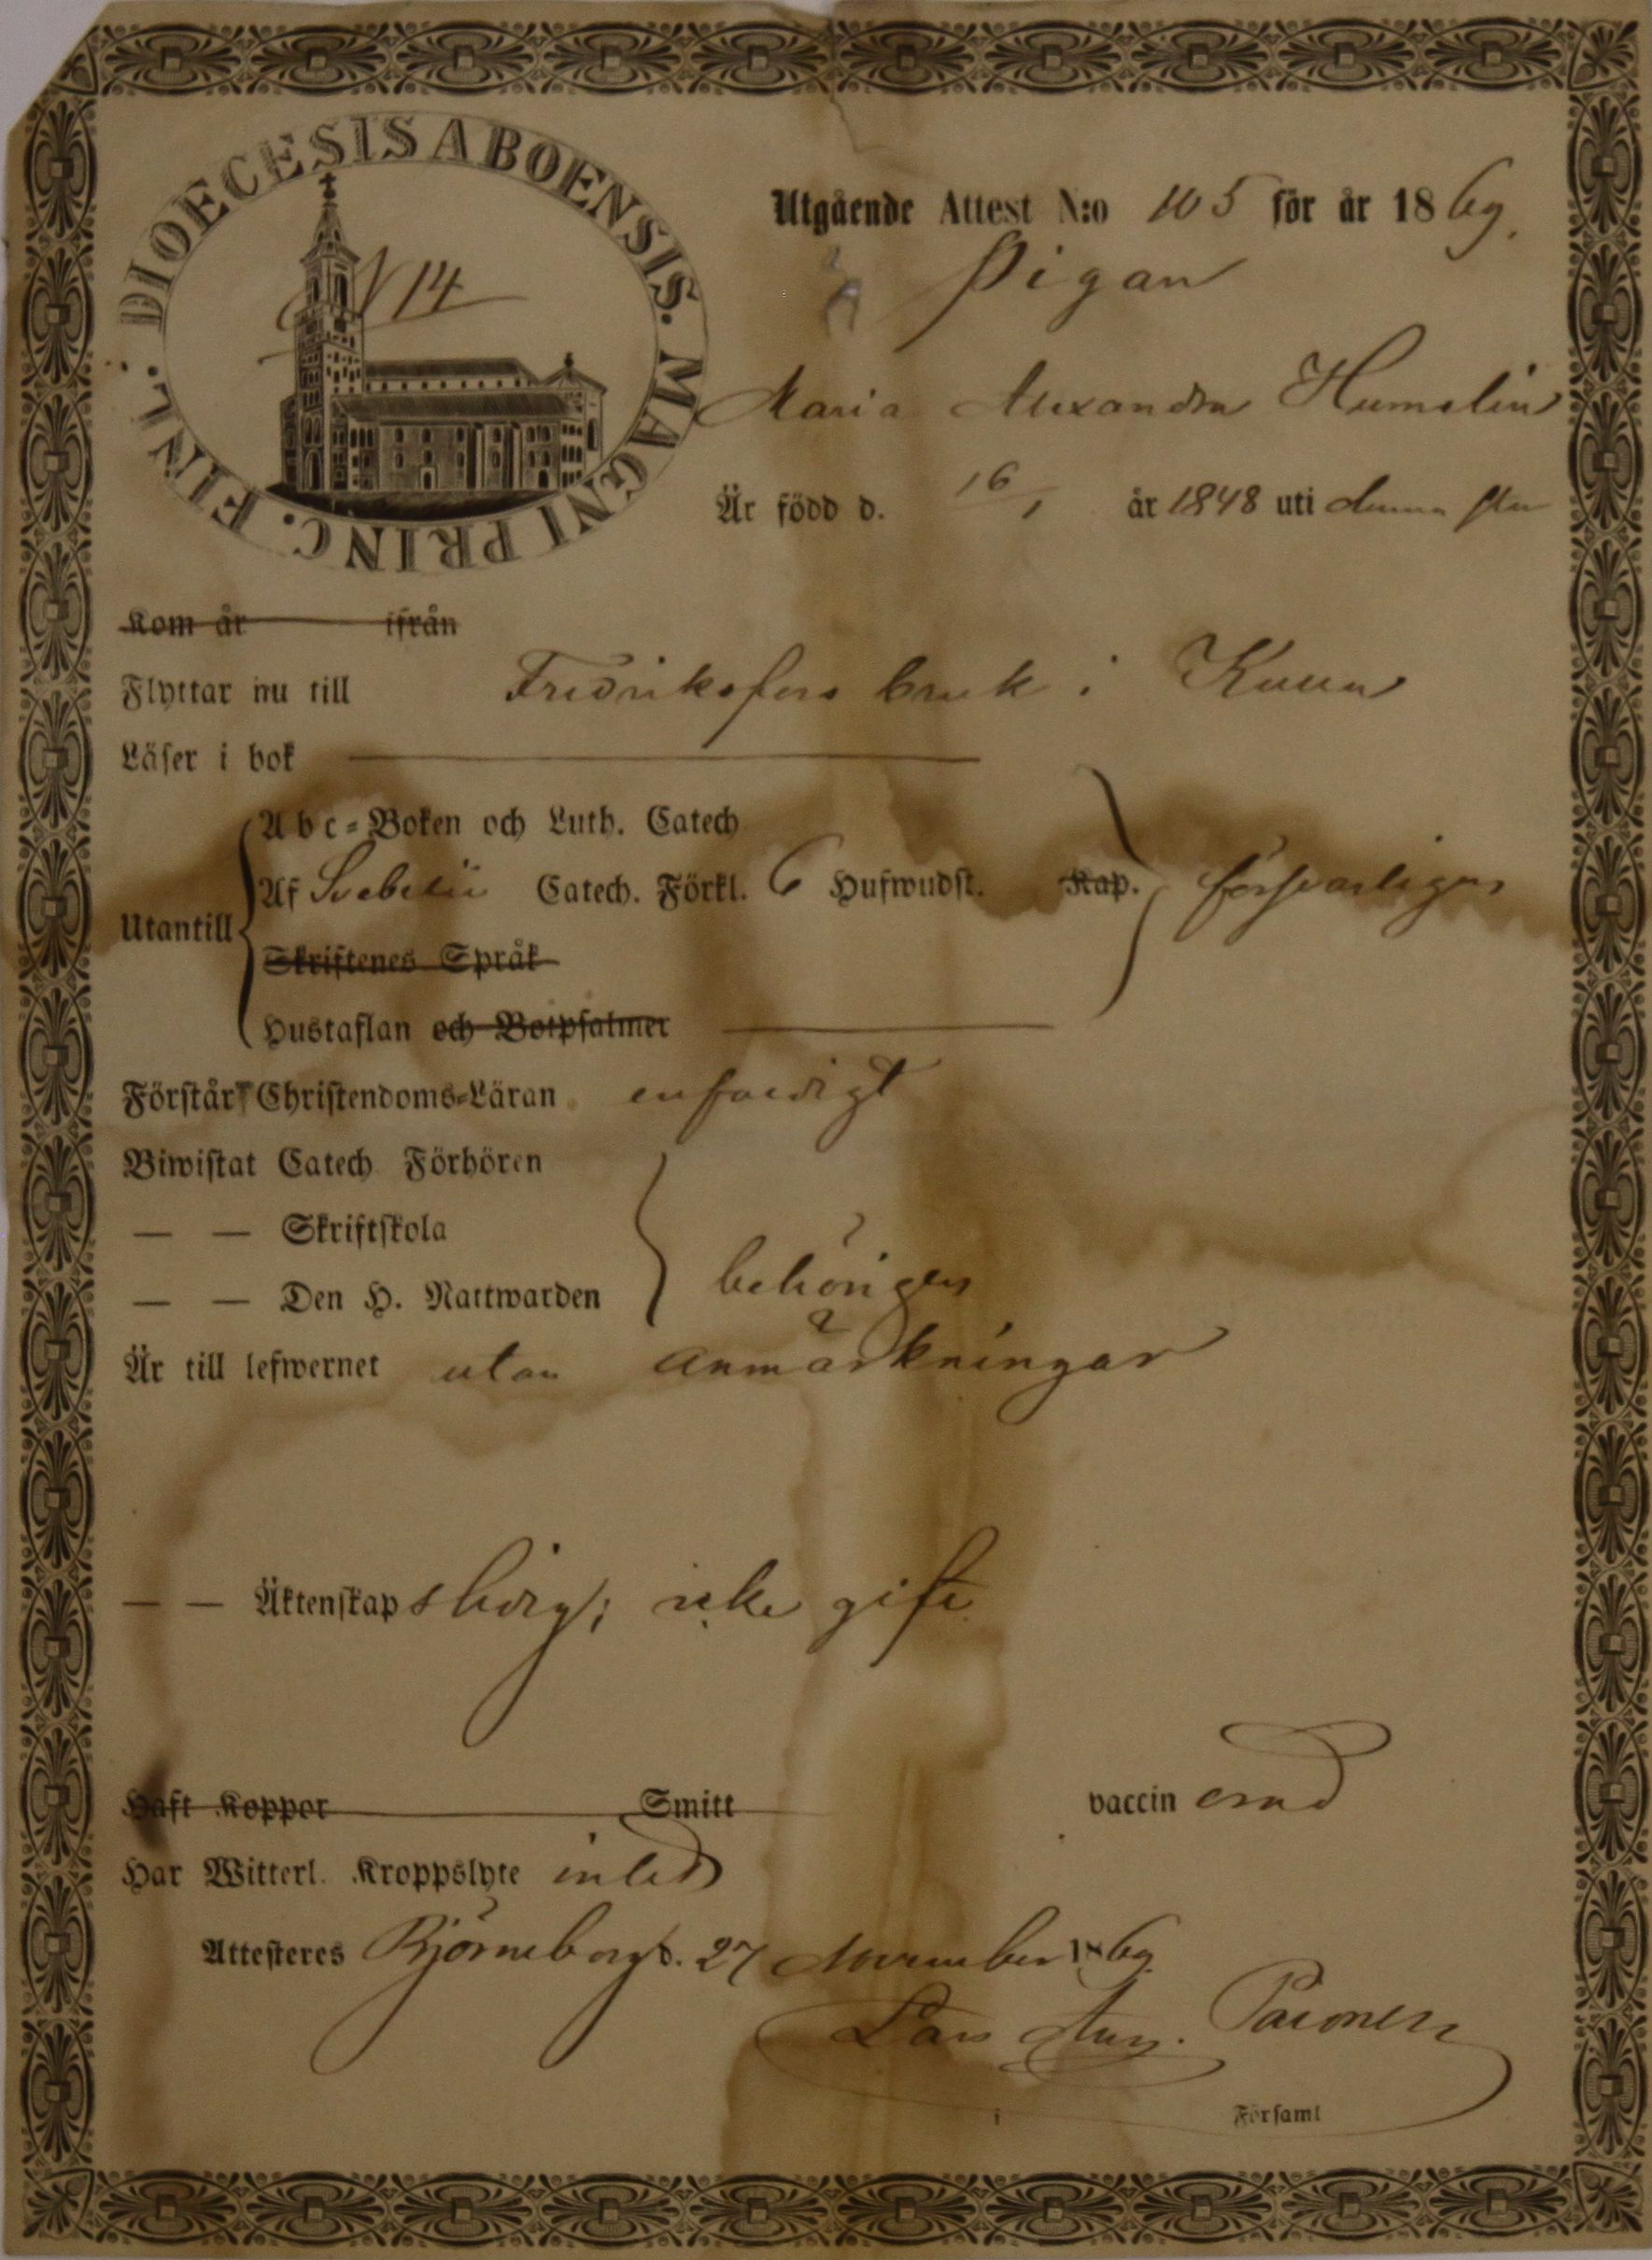 DIOECESIS ABOENSIS. MAGNI PRINC. FINL.
N 14
Utgående Attest N:o 105 för år 1869.
Pigan
Maria Alexandra Humelin
Är född d. 16/1 år 1848 uti denna
Kom år ifrån
Flyttar nu till Fredriksfors bruk i
Läser i bok
Abc-Boken och Luth. Catech
Utantill Af Svebelii Catech. Förkl. 6 Hufwudst. Kap. försvarligen
Skriftenes Språk
Hustaflan och Botpsalmer
Förstår Christendoms-Läran enfaldigt
Biwistat Catech Förhören
— — Skriftskola
— — Den H. Nattwarden behörigen
Är till lefwernet utan anmärkningar
— — Äktenskap sledig; icke gift
Haft Koppor Smitt vaccinerad
Har Witterl. Kroppslyte intet
Attesteres Björneborg d. 27 November 1869.
Lars Aug.
i Församl